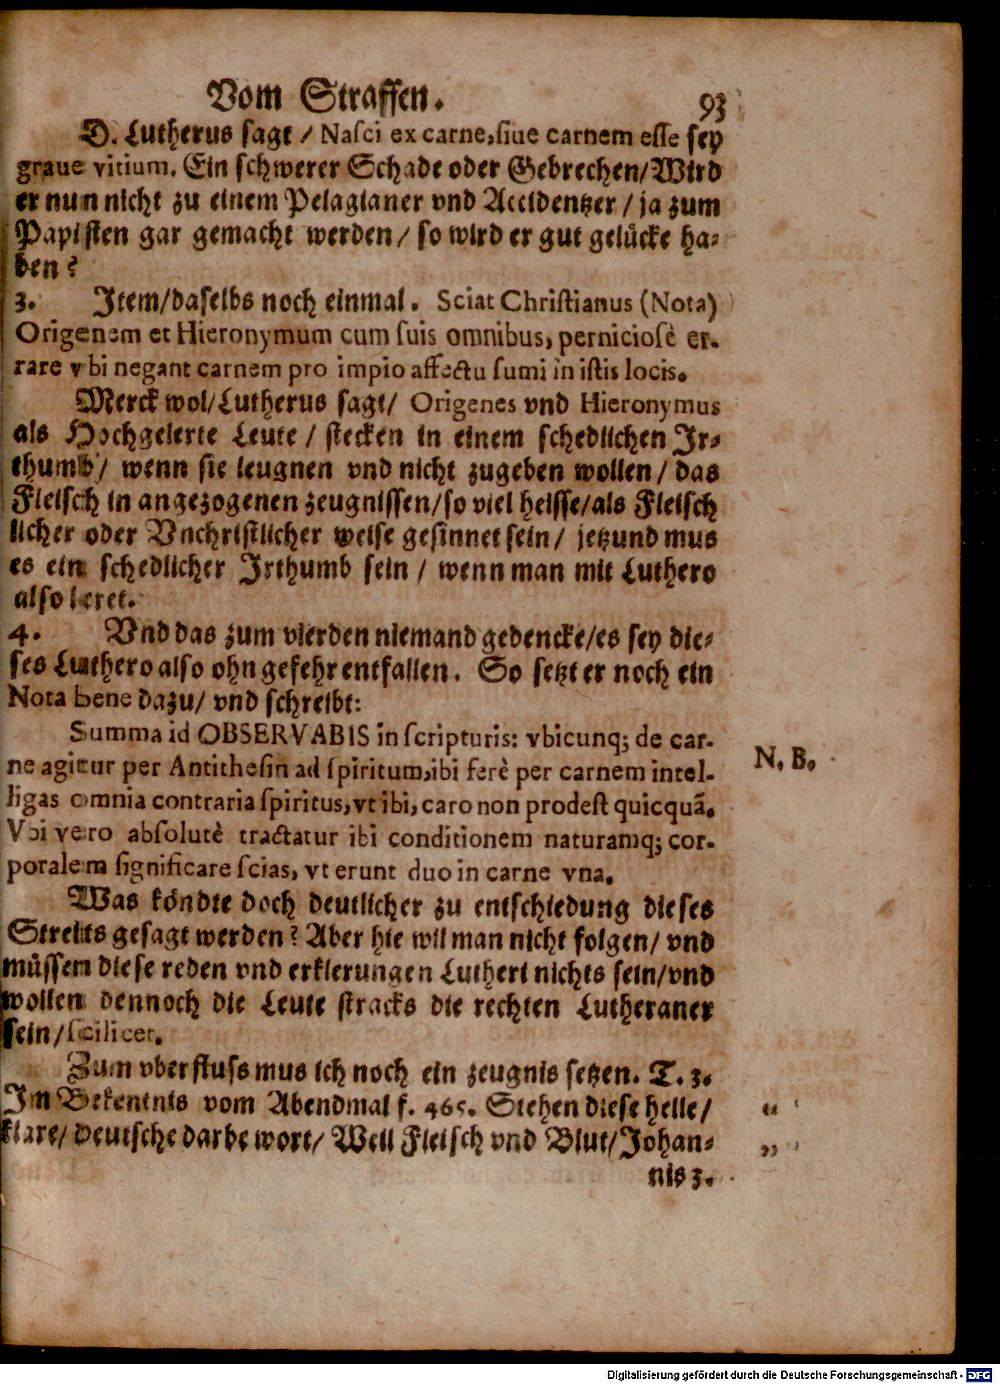 Vom Straffen. 93
D. Lutherus sagt / Nasci ex carne, siue carnem esse sey
graue vitium. Ein schwerer Schade oder Gebrechen/Wird
er nun nicht zu einem Pelagianer vnd Accidentzer / ja zum
Papisten gar gemacht werden / so wird er gut gelücke ha-
ben?
3. Jtem/daselbs noch einmal. Sciat Christianus (Nota)
Origenem et Hieronymum cum suis omnibus, perniciosè er-
rare vbi negant carnem pro impio affectu sumi in istis locis.
Merck wol/Lutherus sagt/ Origenes vnd Hieronymus
als Hochgelerte Leute / stecken in einem schedlichen Jr-
thumb/ wenn sie leugnen vnd nicht zugeben wollen / das
Fleisch in angezogenen zeugnissen/so viel heisse/als Fleisch
licher oder Vnchristlicher weise gesinnet sein/ jetzund mus
es ein schedlicher Jrthumb sein / wenn man mit Luthero
also leret.
4. Vnd das zum vierden niemand gedencke/es sey die-
ses Luthero also ohn gefehr entfallen. So setzt er noch ein
Nota bene dazu/ vnd schreibt:
Summa id OBSERVABIS in scripturis: vbicunq; de car-
ne agitur per Antithesin ad spiritum,ibi ferè per carnem intel-
ligas omnia contraria spiritus, vt ibi, caro non prodest quicquã.
Vbi vero absolutè tractatur ibi conditionem naturamq; cor-
poralem significare scias, vt erunt duo in carne vna.
N. B.
Was köndte doch deutlicher zu entschiedung dieses
Streits gesagt werden? Aber hie wil man nicht folgen/ vnd
müssen diese reden vnd erklerungen Lutheri nichts sein/vnd
wollen dennoch die Leute stracks die rechten Lutheraner
sein/scilicet.
Zum vberfluss mus ich noch ein zeugnis setzen. T. 3.
Jm Bekentnis vom Abendmal f. 465. Stehen diese helle/ „
klare/ Deutsche darbe wort/ Weil Fleisch vnd Blut/Johan- „
nis 3.
Digitalisierung gefördert durch die Deutsche Forschungsgemeinschaft - DFG